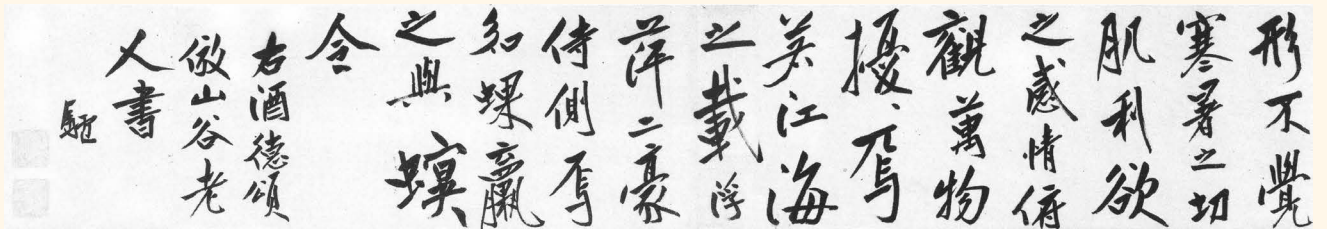 形不覺
寒暑之切
肌利欲
之感情俯
觀萬物
擾、焉
若江海
之載浮
萍二豪
侍側焉
如蜾蠃
之與螟
令
右酒德頌
倣山谷老
人書